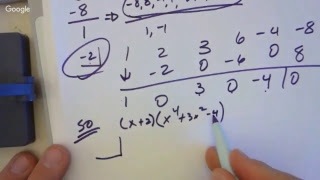 Google
-8 ⇒ (-8, 8,
1 1, -1
-2 | 1 2 3 6 -4 -8
↓ -2 0 -6 0 8
1 0 3 0 -4 | 0
SO (x+2)(x⁴+3x²-4)